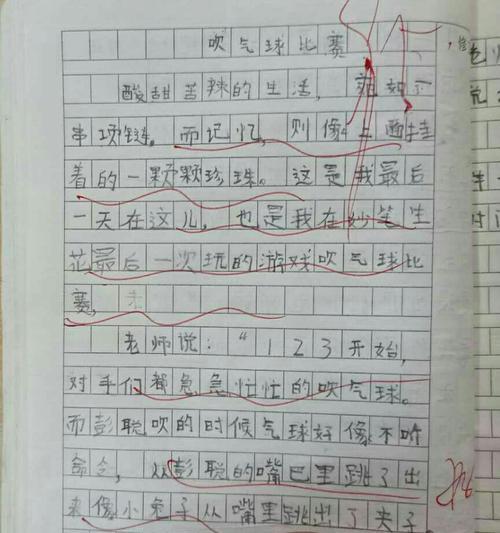 吹气球比赛
酸甜苦辣的生活，宛如一
串项链。而记忆，则像上面挂
着的一颗颗珍珠。这是我最后
一天在这儿，也是我在妙笔生
花最后一次玩的游戏吹气球比
赛，
老师说：“123开始，
对手们都急急忙忙的吹气球。
而彭聪吹的时候气球好像不听
命令，从彭聪的嘴巴里跳了出
来像小兔子从嘴里跳出了夹子